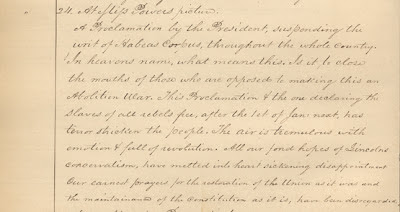 24. At Miss Powers picture.
A Proclamation by the President, suspending the
writ of Habeas Corpus, throughout the whole country.
In heavens name, what means this. Is it, to close
the mouths of those who are opposed to making this an
Abolition War. This Proclamation & the one declaring the
Slaves of all rebels free, after the 1st of Jan: next, has
terror stricken the people. The air is tremulous with
emotion & full of revolution. All our fond hopes of Lincolns
conservatism, have melted into heart sickening disappointment
Our earnest prayers for the restoration of the Union as it was and
the maintainance of the constitution as it is, have been disregarded